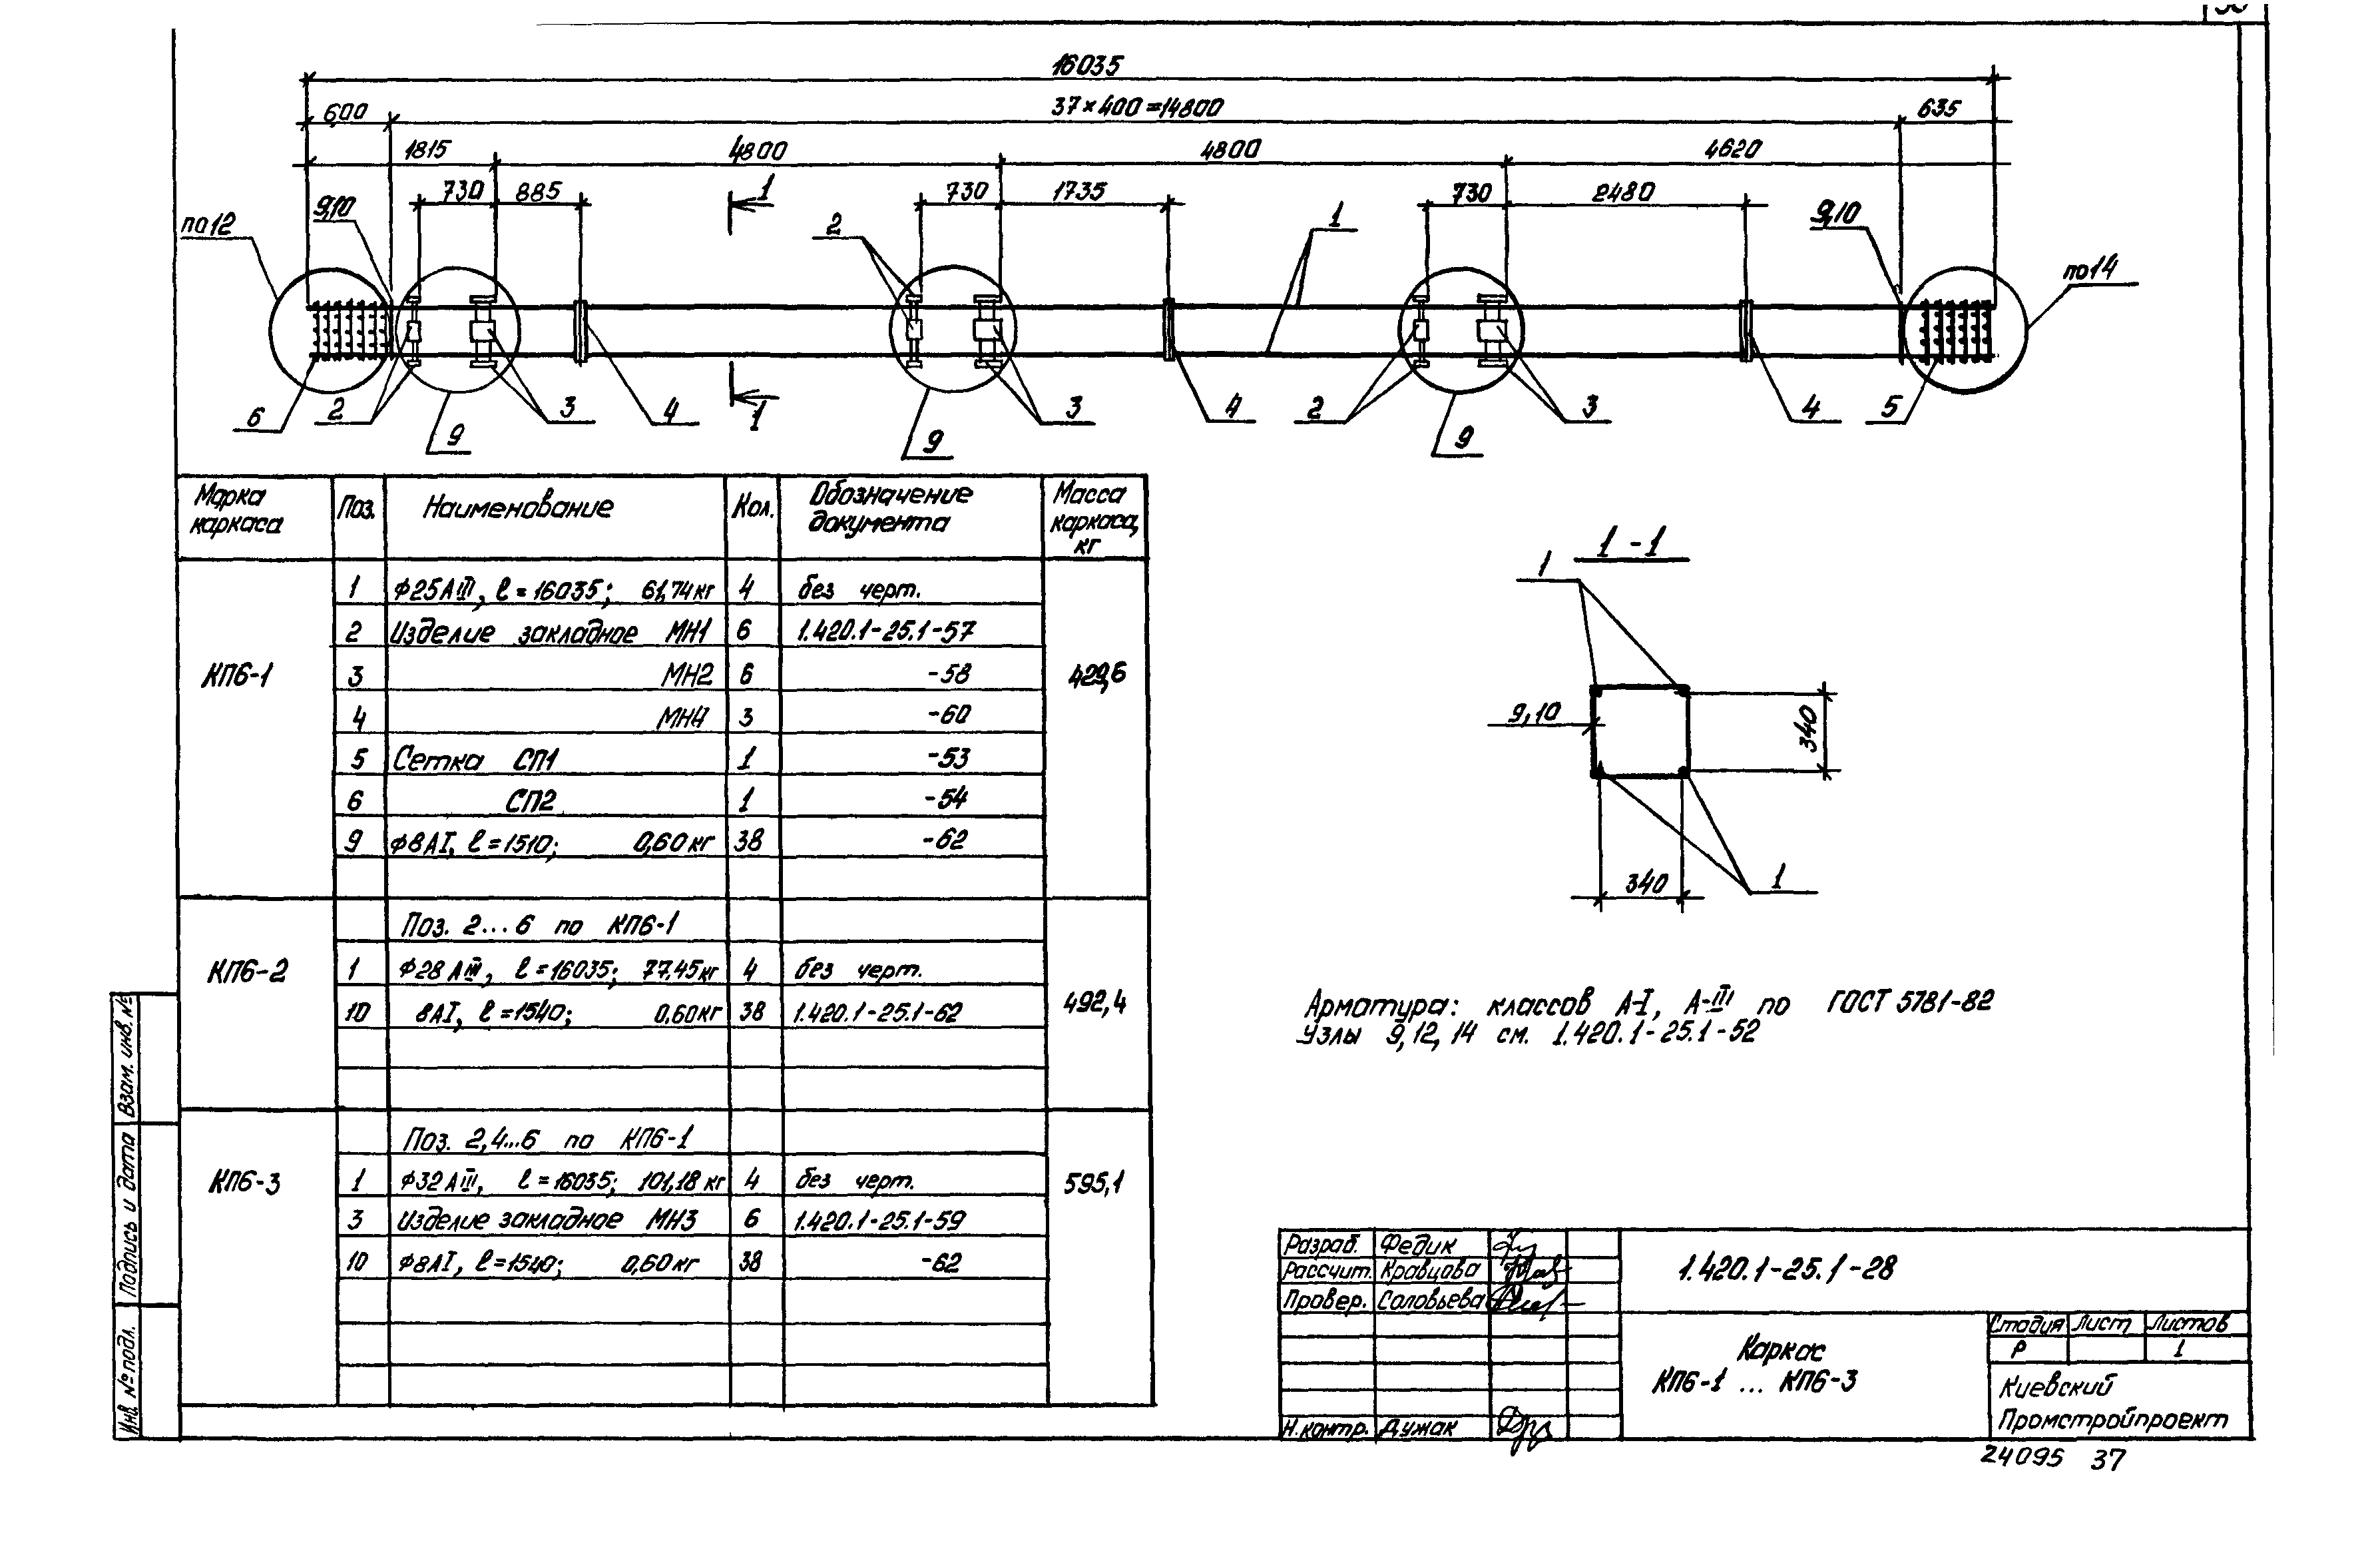 16035
600 37×400=14800 635
1815 4800 4800 4620
730 885 1 730 1735 730 2480
по12 9,10 2 1 9,10 по14
6 2 9 3 4 1 9 3 4 2 9 3 4 5
Марка каркаса Поз. Наименование Кол. Обозначение документа Масса каркаса, кг
КП6-1 429,6
1 ф25АIII, ℓ=16035; 61,74кг 4 без черт.
2 Изделие закладное МН1 6 1.420.1-25.1-57
3 МН2 6 -58
4 МН4 3 -60
5 Сетка СП1 1 -53
6 СП2 1 -54
9 ф8АI, ℓ=1510; 0,60кг 38 -62
КП6-2 492,4
Поз. 2...6 по КП6-1
1 ф28АIII, ℓ=16035; 77,45кг 4 без черт.
10 8АI, ℓ=1540; 0,60кг 38 1.420.1-25.1-62
КП6-3 595,1
Поз. 2,4...6 по КП6-1
1 ф32АIII, ℓ=16035; 101,18кг 4 без черт.
3 Изделие закладное МН3 6 1.420.1-25.1-59
10 ф8АI, ℓ=1540; 0,60кг 38 -62
1-1
1
9,10
340
340
1
Арматура: классов А-I, А-III по ГОСТ 5781-82
Узлы 9,12,14 см. 1.420.1-25.1-52
Взам. инв. №
Подпись и дата
Инв. № подл.
Разраб. Федик
Рассчит. Кравцова
Провер. Соловьева
Н.контр. Дужак
1.420.1-25.1-28
Каркас
КП6-1 ... КП6-3
Стадия Лист Листов
Р 1
Киевский
Промстройпроект
24095 37